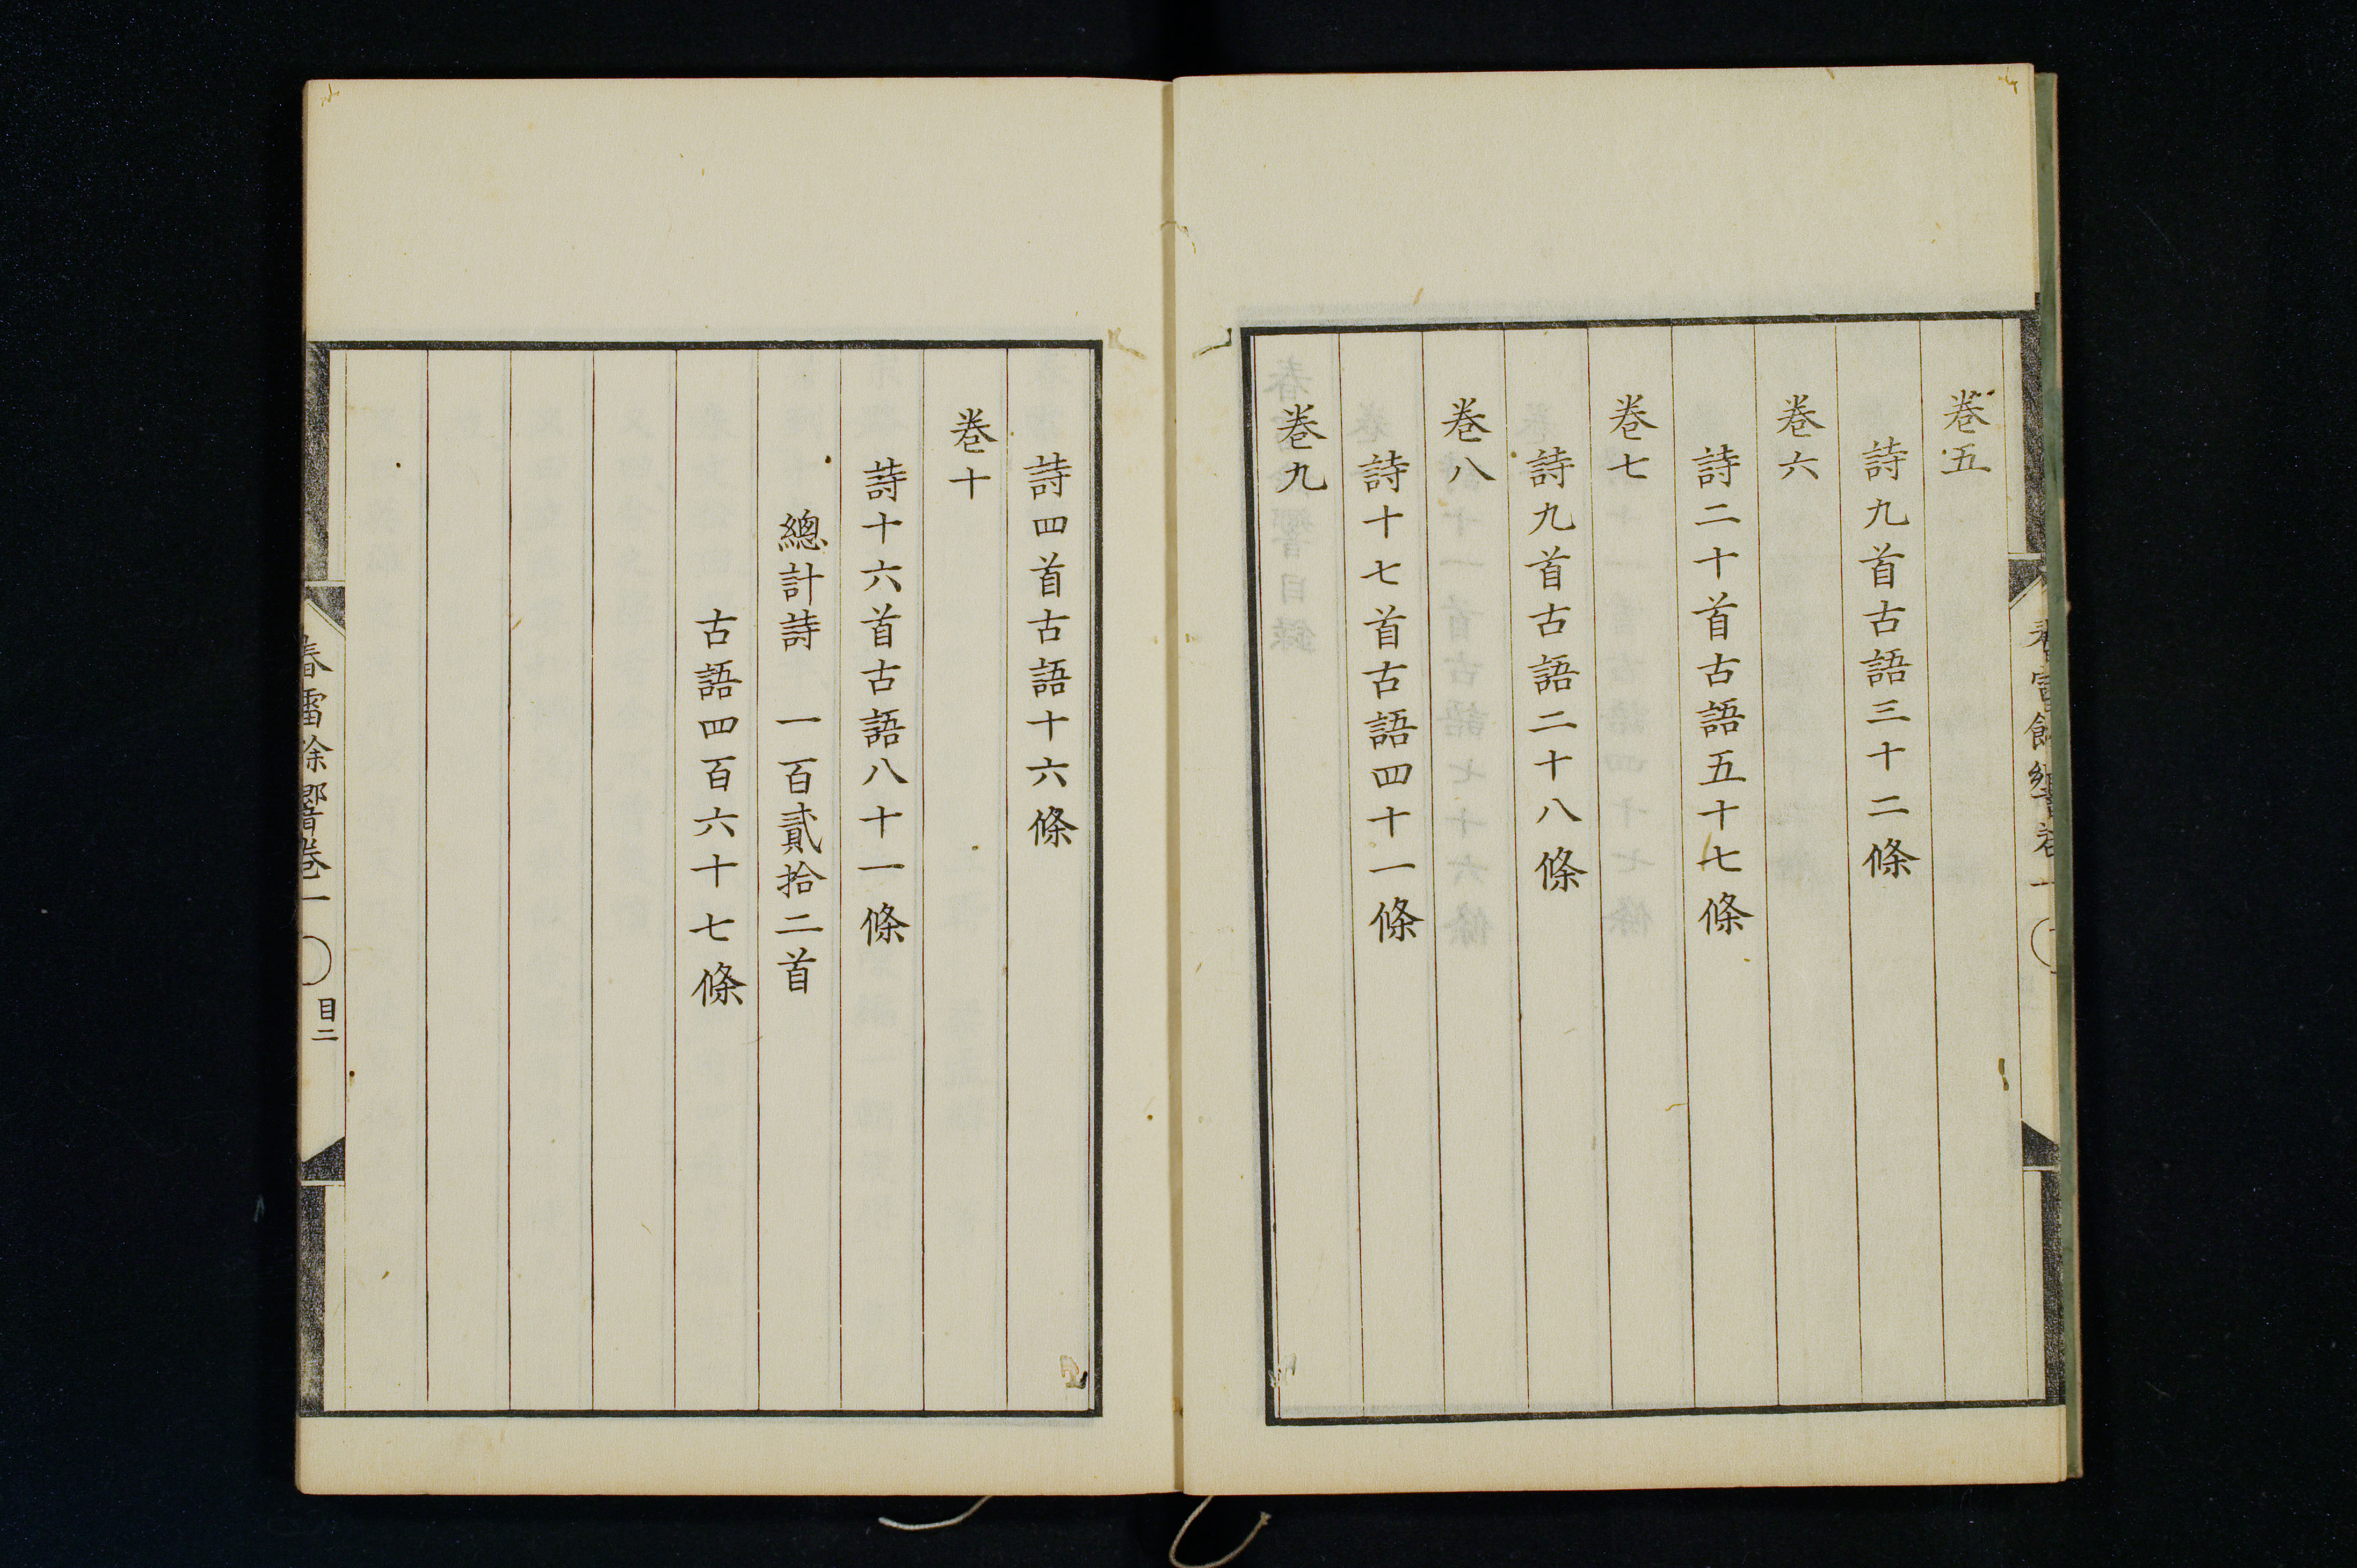 卷五
詩九首古語三十二條
卷六
詩二十首古語五十七條
卷七
詩九首古語二十八條
卷八
詩十七首古語四十一條
卷九
詩四首古語十六條
卷十
詩十六首古語八十一條
總計詩　一百貳拾二首
古語四百六十七條
春雷餘響卷一
目二